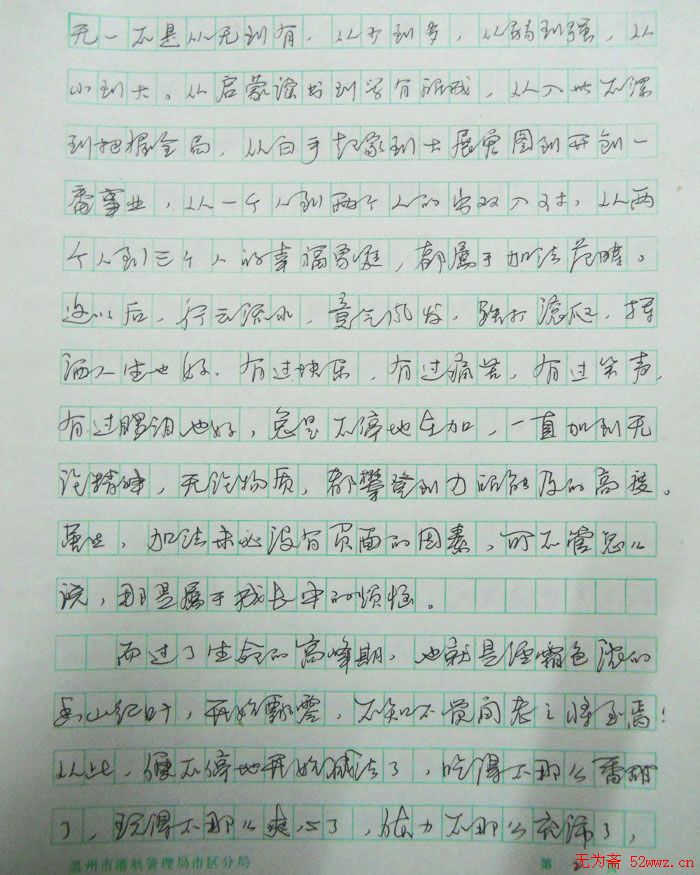 无一不是从无到有，从少到多，从弱到强，从
小到大。从启蒙读书到学有所成，从入世不深
到把握全局，从白手起家到大展宏图到开创一
番事业，从一个人到两个人的出双入对，从两
个人到三个人的幸福家庭，都属于加法范畴。
这以后，行云流水，意气风发，跌打滚爬，挥
洒人生也好，有过快乐，有过痛苦，有过笑声，
有过眼泪也好，总是不停地在加，一直加到无
论精神，无论物质，都攀登到力所能及的高度。
虽也，加法未必没有负面的因素，可不管怎么
说，那是属于成长中的烦恼。
而过了生命的高峰期，也就是经霜色浓的
红叶，开始飘零，不知不觉间老之将至焉！
从此，便不停地开始减法了，吃得不那么香甜
了，玩得不那么爽心了，体力不那么充沛了，
温州市港航管理局市区分局
第 2
无为斋 52wwz.cn